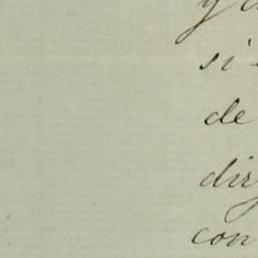 y
si
de
dir
con